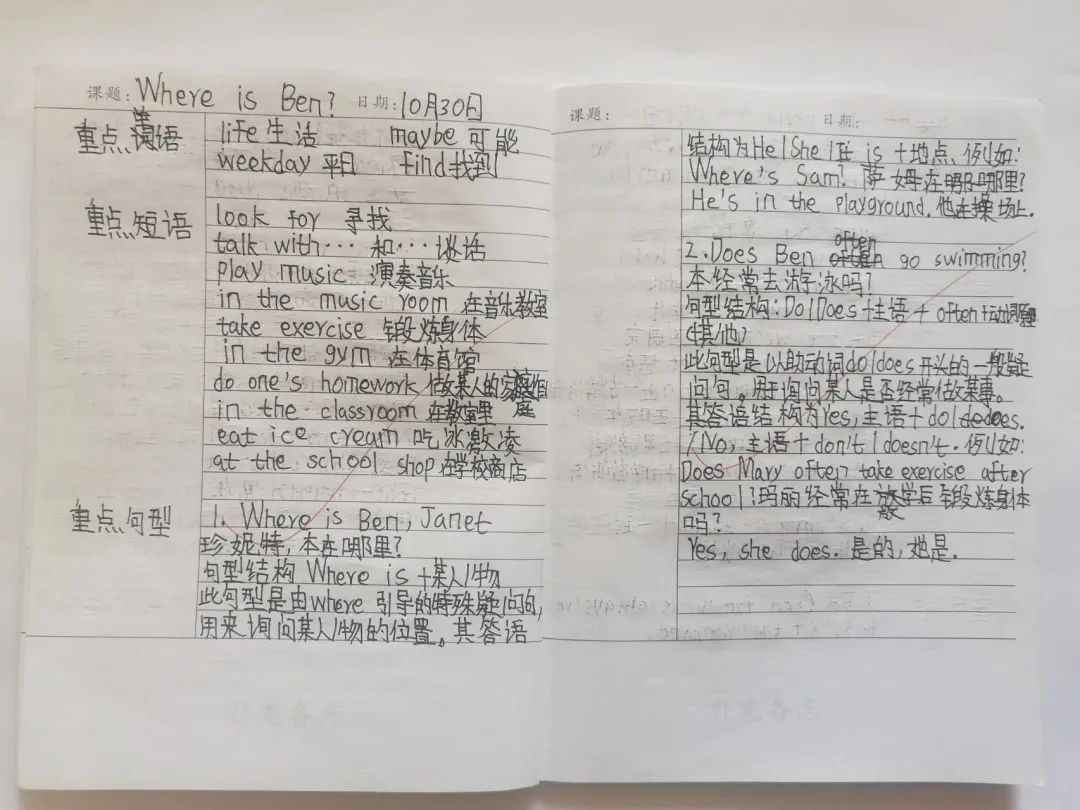 课题: Where is Ben? 日期: 10月30日
重点单词语
life 生活 maybe 可能
weekday 平日 find 找到
重点短语
look for 寻找
talk with… 和…谈话
play music 演奏音乐
in the music room 在音乐教室
take exercise 锻炼身体
in the gym 在体育馆
do one's homework 做某人的家庭作
in the classroom 在教室里
eat ice cream 吃冰激凌
at the school shop 在学校商店
重点句型
1. Where is Ben, Janet
珍妮特,本在哪里?
句型结构 Where is +某人/物
此句型是由where 引导的特殊疑问句,
用来询问某人/物的位置。其答语
课题: 日期:
结构为He/She/It is +地点 例如:
Where's Sam? 萨姆在哪里?
He's in the playground. 他在操场上.
2. Does Ben often go swimming?
本经常去游泳吗?
句型结构: Do/Does +主语 + often +动词原型
(其他)
此句型是以助动词do/does 开头的一般疑
问句。用于询问某人是否经常做某事。
其答语结构为Yes, 主语+ do/does.
/No, 主语+ don't/doesn't. 例如:
Does Mary often take exercise after
school? 玛丽经常在放学后锻炼身体
吗?
Yes, she does. 是的,她是.